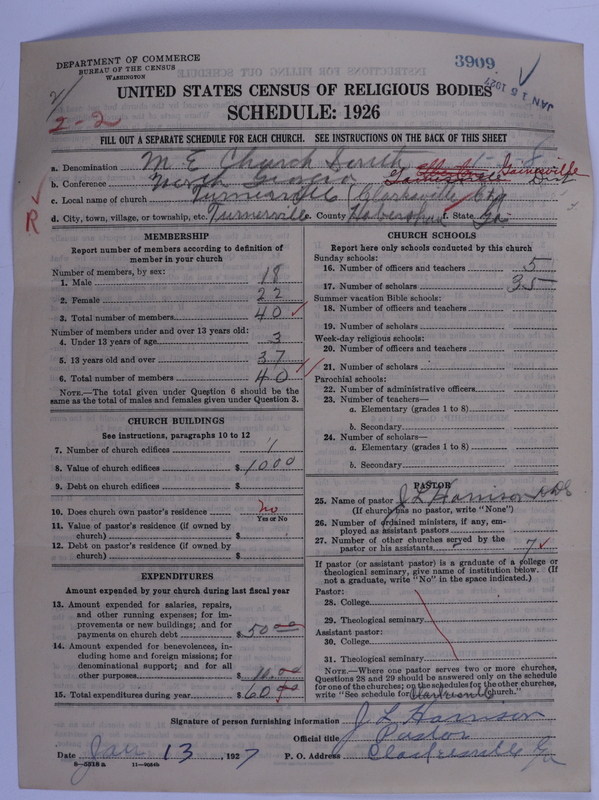 3909
JAN 15 1927
DEPARTMENT OF COMMERCE
BUREAU OF THE CENSUS
WASHINGTON
UNITED STATES CENSUS OF RELIGIOUS BODIES
SCHEDULE: 1926
2-2
FILL OUT A SEPARATE SCHEDULE FOR EACH CHURCH. SEE INSTRUCTIONS ON THE BACK OF THIS SHEET
a. Denomination M E Church South 1-8
b. Conference North Georgia Gainesville Dist
c. Local name of church Turnerville (Clarksville
R
d. City, town, village, or township, etc. Turnerville e. County Habersham f. State Ga
MEMBERSHIP
Report number of members according to definition of
member in your church
Number of members, by sex:
1. Male 18
2. Female 22
3. Total number of members 40
Number of members under and over 13 years old:
4. Under 13 years of age 3
5. 13 years old and over 37
6. Total number of members 40
NOTE.—The total given under Question 6 should be
same as the total of males and females given under Question 3.
CHURCH BUILDINGS
See instructions, paragraphs 10 to 12
7. Number of church edifices 1
8. Value of church edifices $ 1000
9. Debt on church edifices $
10. Does church own pastor's residence no
Yes or No
11. Value of pastor's residence (if owned by
church) $
12. Debt on pastor's residence (if owned by
church) $
EXPENDITURES
Amount expended by your church during last fiscal year
13. Amount expended for salaries, repairs,
and other running expenses; for im-
provements or new buildings; and for
payments on church debt $ 50.00
14. Amount expended for benevolences, in-
cluding home and foreign missions; for
denominational support; and for all
other purposes $ 10.00
15. Total expenditures during year $ 60.00
CHURCH SCHOOLS
Report here only schools conducted by this church
Sunday schools:
16. Number of officers and teachers 5
17. Number of scholars 35
Summer vacation Bible schools:
18. Number of officers and teachers
19. Number of scholars
Week-day religious schools:
20. Number of officers and teachers
21. Number of scholars
Parochial schools:
22. Number of administrative officers
23. Number of teachers—
a. Elementary (grades 1 to 8)
b. Secondary
24. Number of scholars—
a. Elementary (grades 1 to 8)
b. Secondary
PASTOR
25. Name of pastor J L Harrison
(If church has no pastor, write "None")
26. Number of ordained ministers, if any, em-
ployed as assistant pastors
27. Number of other churches served by the
pastor or his assistants 7
If pastor (or assistant pastor) is a graduate of a college or
theological seminary, give name of institution below. (If
not a graduate, write "No" in the space indicated.)
Pastor:
28. College
29. Theological seminary
Assistant pastor:
30. College
31. Theological seminary
NOTE.—Where one pastor serves two or more churches,
Questions 28 and 29 should be answered only on the schedule
for one of the churches; on the schedules for the other churches,
write "See schedule for Clarksville church."
Signature of person furnishing information J. L. Harrison
Official title Pastor
Date Jan 13, 1927 P. O. Address Clarksville Ga
8—5518a 11—9054b